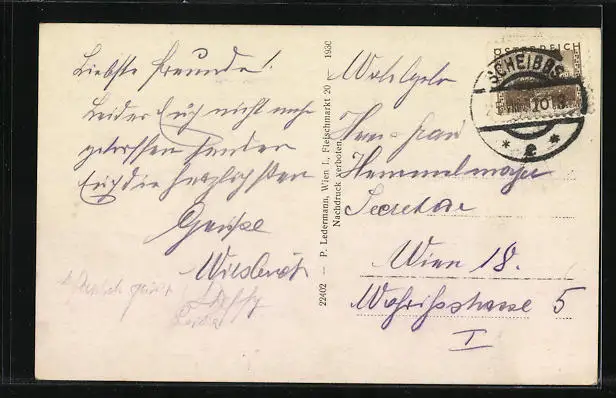 Liebste Freunde!
Leider Euch nicht mehr
getroffen senden
Euch die herzlichsten
Grüsse
22402 — P. Ledermann, Wien I., Fleischmarkt 20 1930
Nachdruck verboten
ÖSTERREICH
SCHEIBBS
10
* e *
Wohlgeb
Herr Frau
Hemmelmayer
Secretär
Wien 18.
Währingerstrasse 5
I